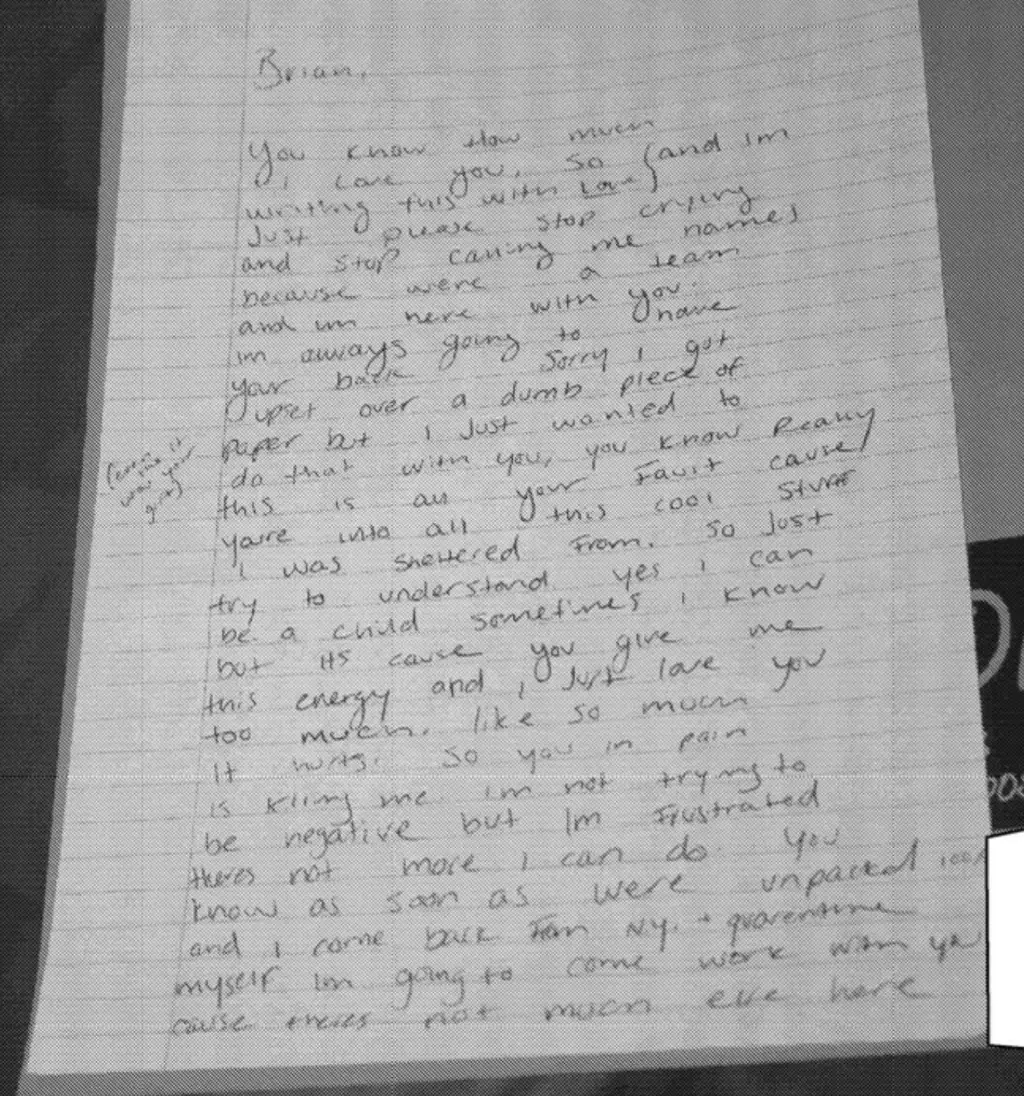 Brian,
You know How much
i love you, so (and im
writing this with Love)
Just please stop crying
and stop calling me names
because were a team
and im here with you.
im always going to have
your back Sorry i got
upset over a dumb piece of
paper but i Just wanted to
do that with you, you know Really
this is all your Fault cause
youre into all this cool stuff
i was sheltered From. So Just
try to understand yes i can
be a child sometimes i know
but its cause you give me
this energy and i Just love you
too much, like so much
It hurts. So you in pain
is killing me. im not trying to
be negative but Im Frustrated
theres not more i can do. You
know as soon as were unpacked
and i come back From N.Y. + quarentine
myself Im going to come work with
cause theres not much else here